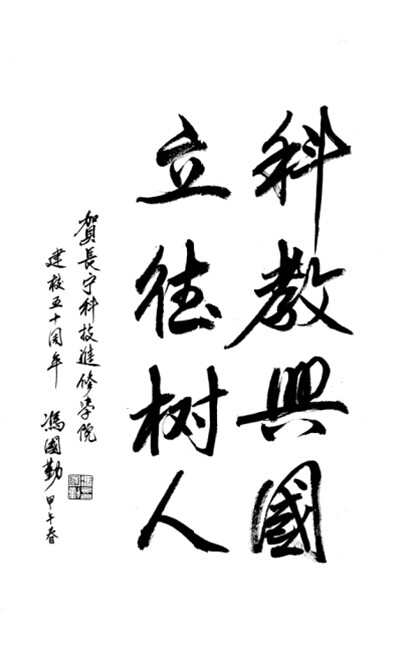 科教興國
立德树人
賀長宁科技進修学院
建校五十周年
馮國勤 甲午春